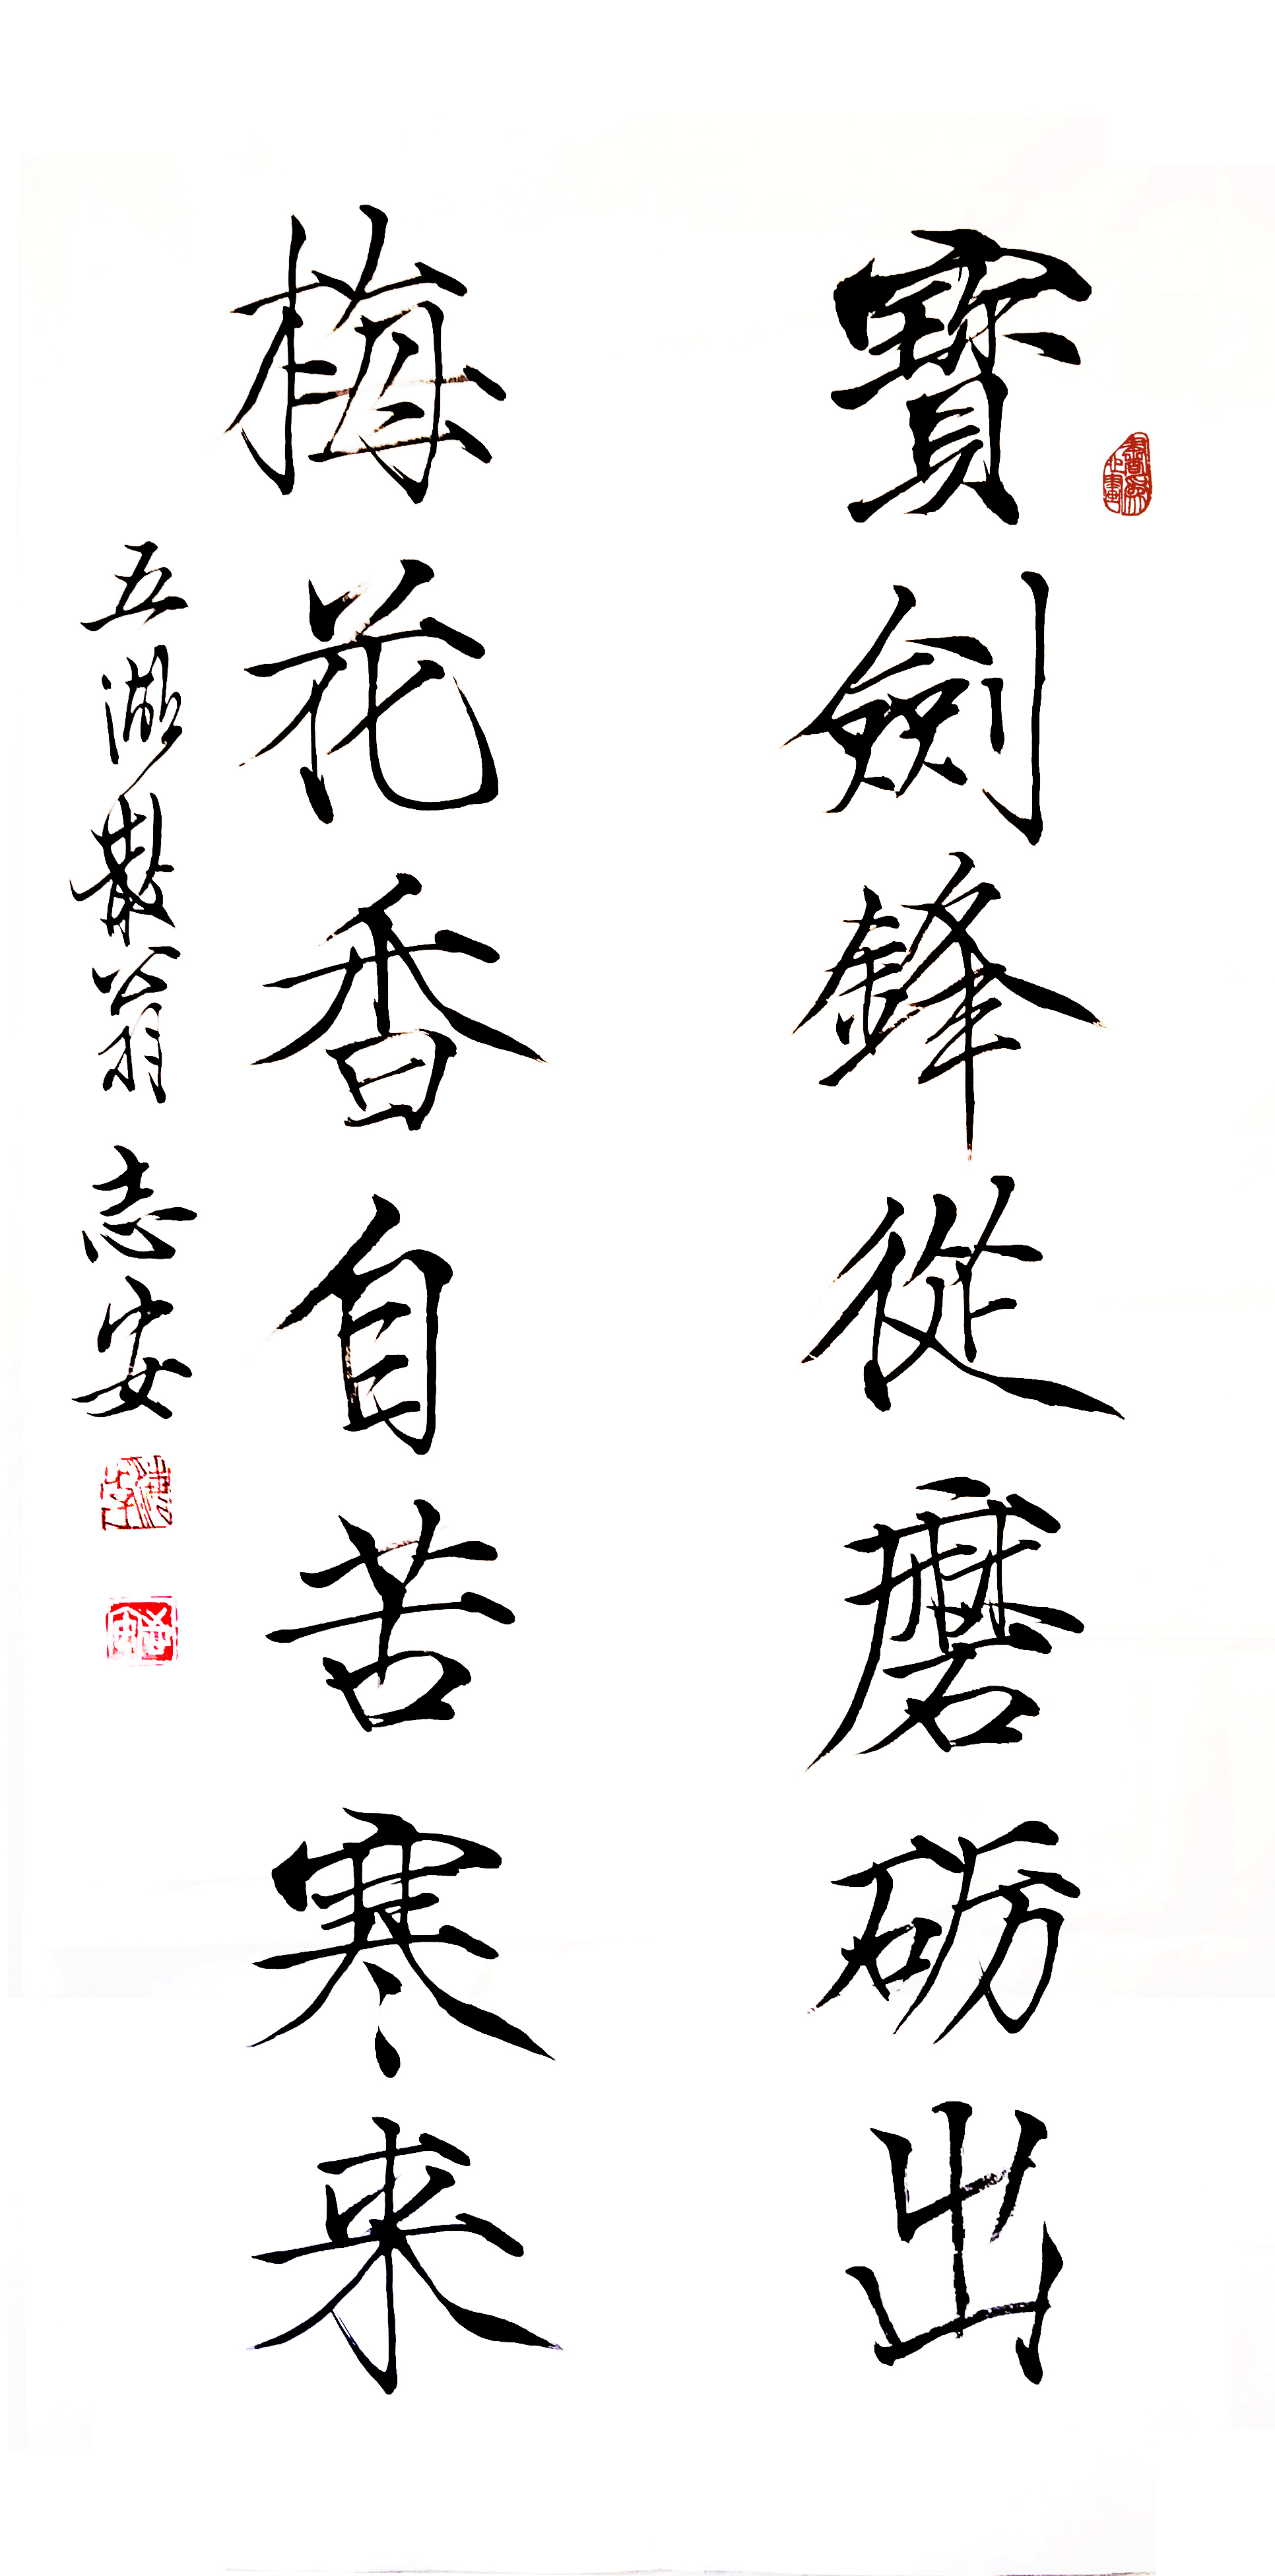 寶劍鋒從磨砺出
梅花香自苦寒来
五湖散翁志安